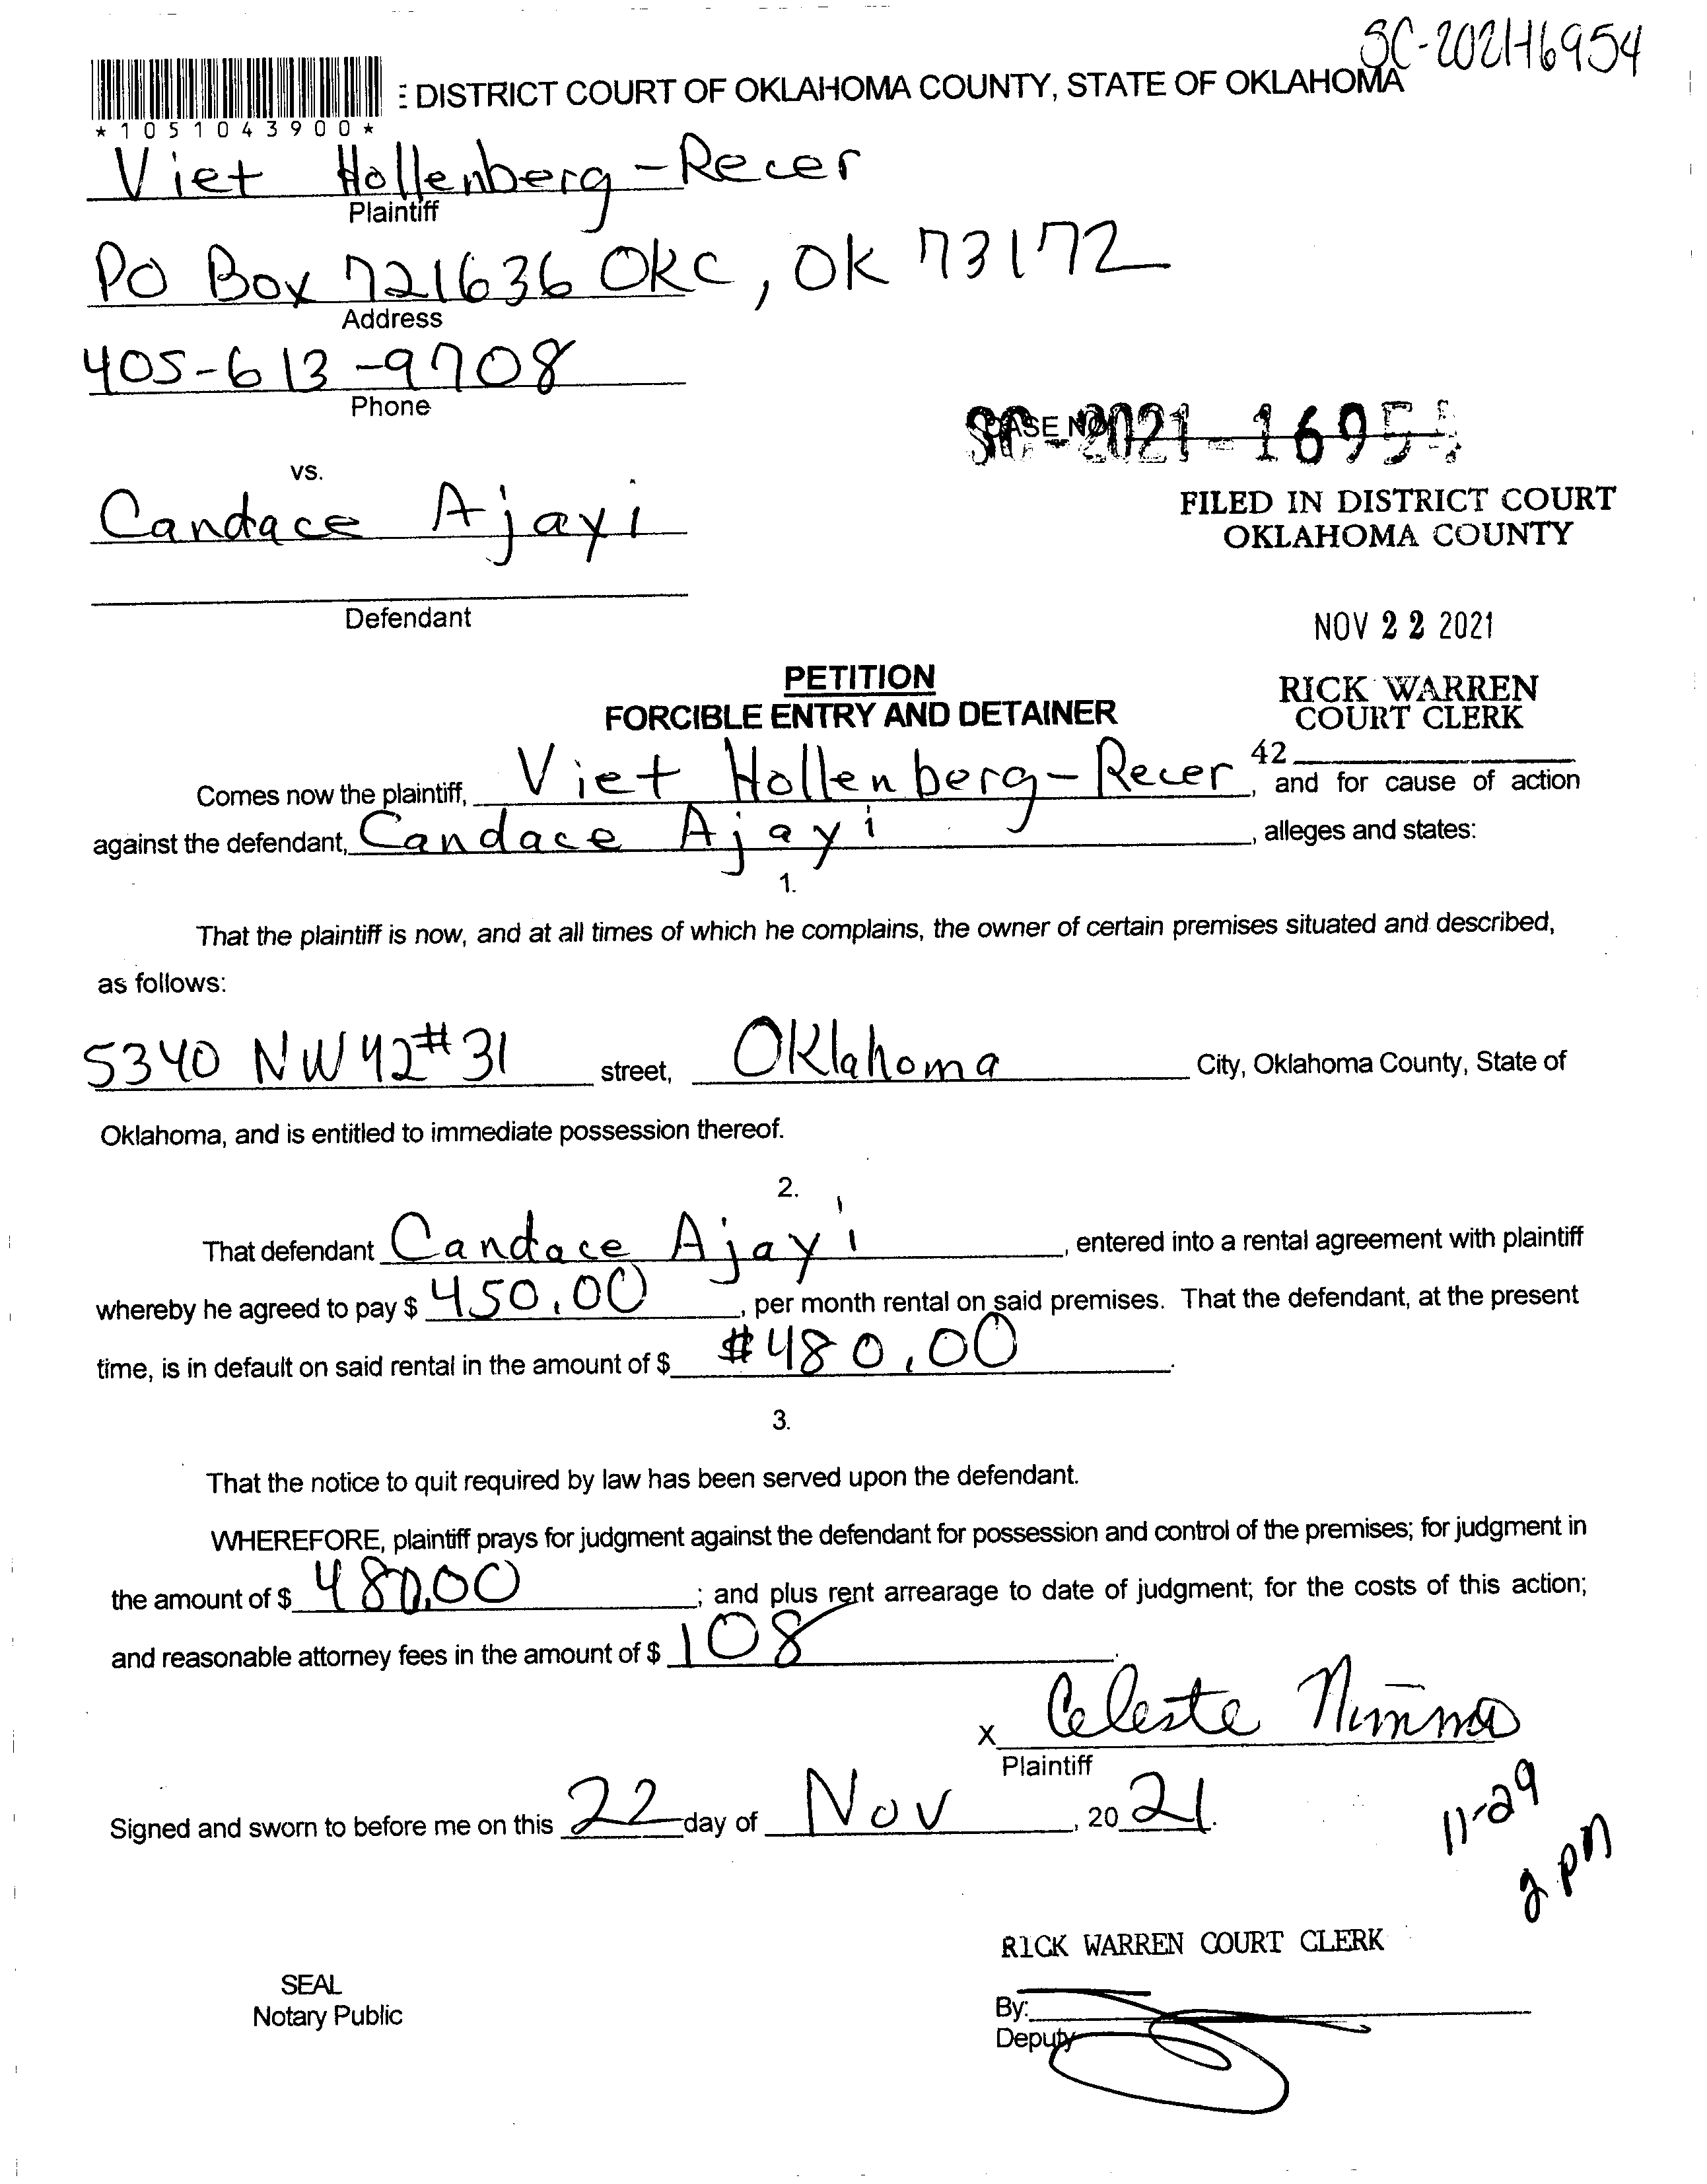 SC-2021-16954
E DISTRICT COURT OF OKLAHOMA COUNTY, STATE OF OKLAHOMA
*1051043900*
Viet Hollenberg-Recer
Plaintiff
PO Box 721636 OKC, OK 73172
Address
405-613-9708
Phone
CASE NO.
SC-2021-16954
vs.
Candace Ajayi
FILED IN DISTRICT COURT
OKLAHOMA COUNTY
Defendant
NOV 22 2021
PETITION
FORCIBLE ENTRY AND DETAINER
RICK WARREN
COURT CLERK
42
Comes now the plaintiff, Viet Hollenberg-Recer, and for cause of action
against the defendant, Candace Ajayi, alleges and states:
1.
That the plaintiff is now, and at all times of which he complains, the owner of certain premises situated and described,
as follows:
5340 NW 42 #31 street, Oklahoma City, Oklahoma County, State of
Oklahoma, and is entitled to immediate possession thereof.
2.
That defendant Candace Ajayi, entered into a rental agreement with plaintiff
whereby he agreed to pay $ 450.00, per month rental on said premises. That the defendant, at the present
time, is in default on said rental in the amount of $ #480.00.
3.
That the notice to quit required by law has been served upon the defendant.
WHEREFORE, plaintiff prays for judgment against the defendant for possession and control of the premises; for judgment in
the amount of $ 480.00; and plus rent arrearage to date of judgment; for the costs of this action;
and reasonable attorney fees in the amount of $ 108.
x Celeste
Plaintiff
Signed and sworn to before me on this 22 day of Nov, 2021.
11-29
2 pm
RICK WARREN COURT CLERK
SEAL
Notary Public
By:
Deputy